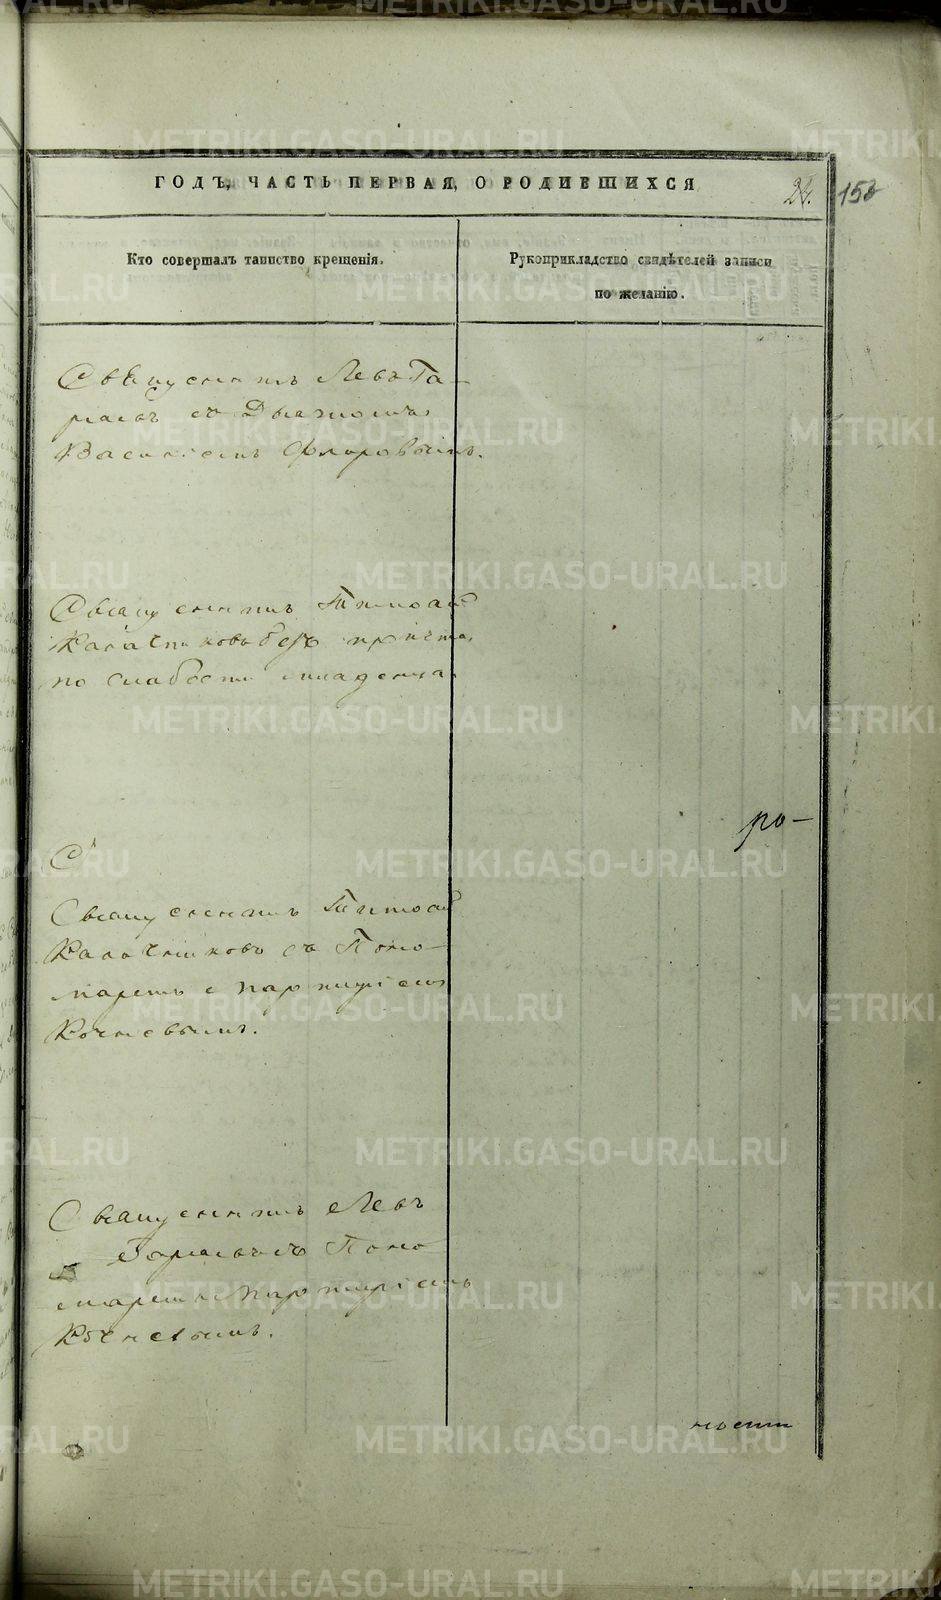 ГОДЪ, ЧАСТЬ ПЕРВАЯ, О РОДИВШИХСЯ
24. 158
Кто совершалъ таинство крещенія.
Рукоприкладство свидѣтелей записи
по желанію.
Священникъ Левъ
съ Дьякономъ
Василіемъ Флоровымъ.
Священникъ Тимофей
Калачниковъ безъ причта,
по слабости младенца.
ро-
С
Священникъ Тимофей
Калачниковъ съ Поно-
маремъ Порфиріемъ
Кочневымъ.
Священникъ Левъ
съ Поно
маремъ Порфиріемъ
Кочневымъ.
METRIKI.GASO-URAL.RU